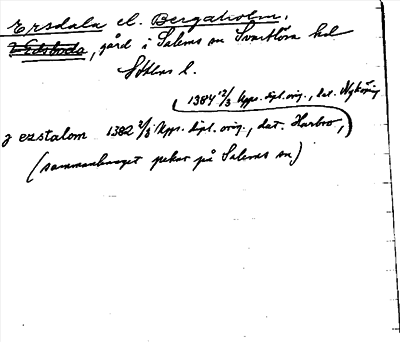 Ersdala el. Bergaholm,
gård i Salems sn Svartlösa hd
Sthlms l.
1384 12/3 Upps. dipl. orig., dat. Nyköping
j ezstalom 1382 2/3 Upps. dipl. orig., dat. Harbro,
(sammanhanget pekar på Salems sn)